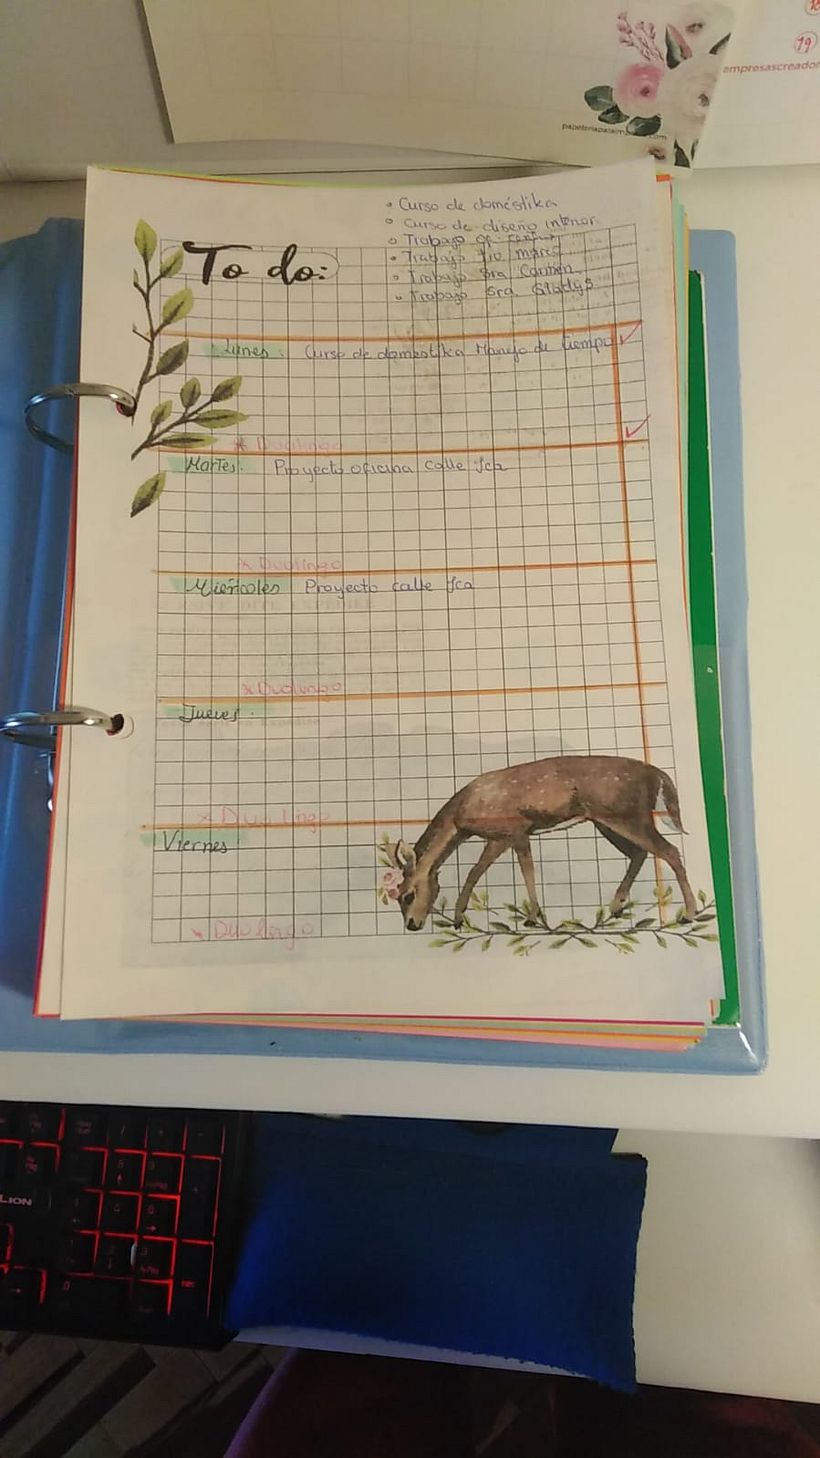 19
empresascreador
papeleriapara
• Curso de doméstika
• Curso de diseño interior
• Trabajo of.
• Trabajo tio marco
• Trabajo Sra Carmen
• Trabajo Sra. Gladys
To do:
Lunes: Curso de domestika Manejo de tiempo
* Duolingo
Martes: Proyecto oficina calle Ica
* Duolingo
Miércoles Proyecto calle Ica
* Duolingo
Jueves:
* Duolingo
Viernes
* Duolingo
LION